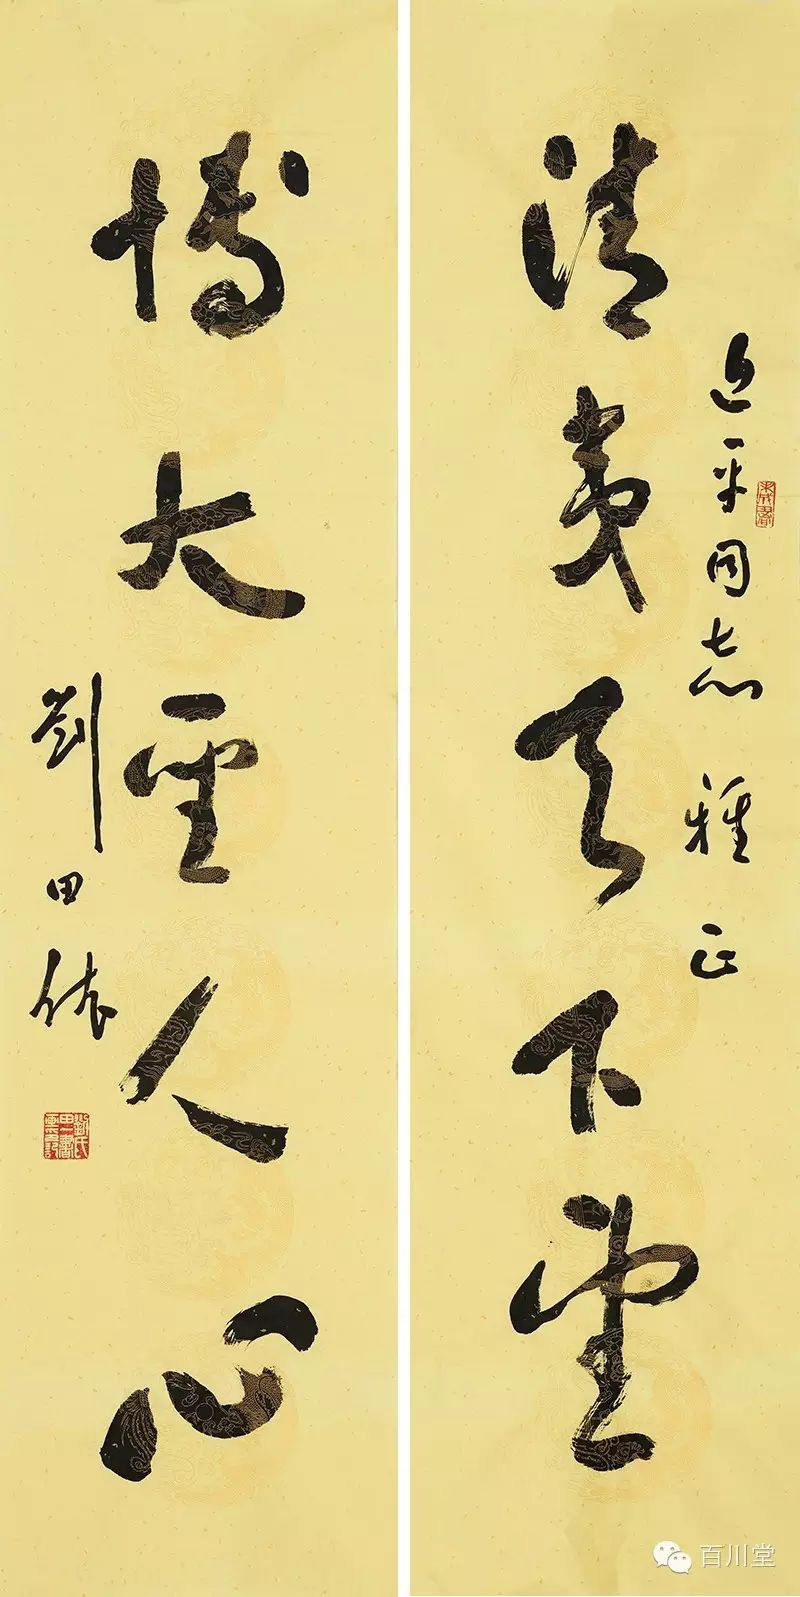 近平同志 雅正
清夷天下望
博大聖人心
劉田依
百川堂